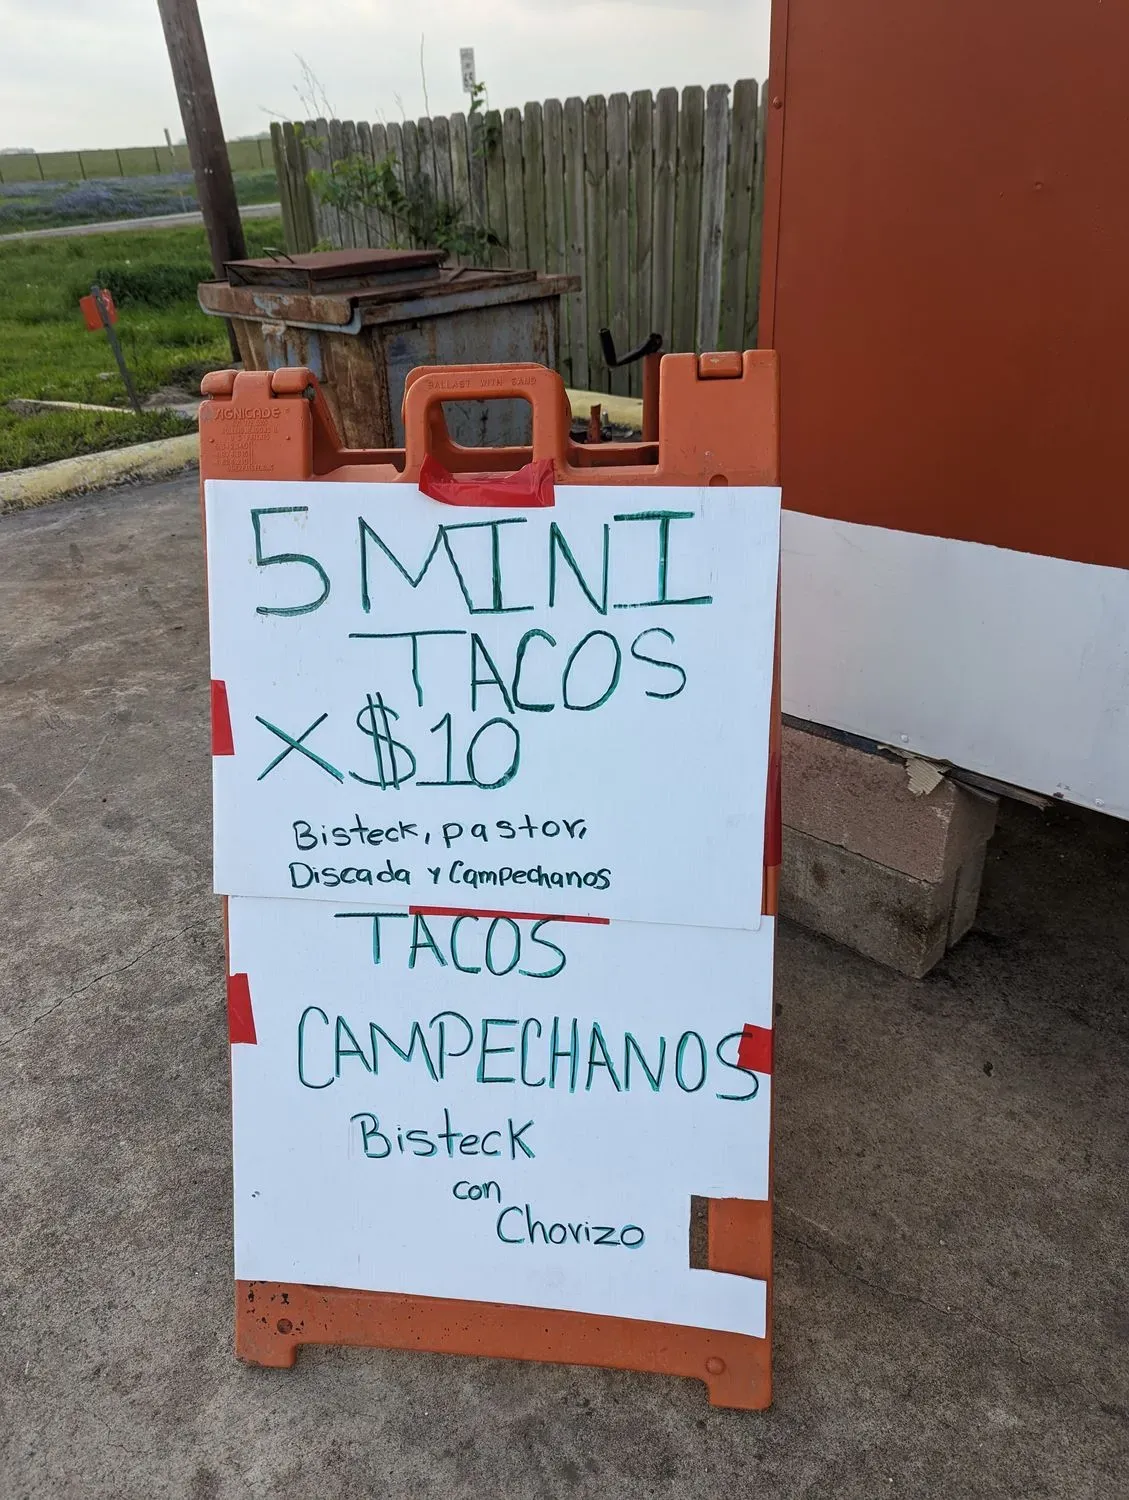 BALLAST WITH SAND
SIGNICADE
5 MINI
TACOS
X $10
Bisteck, pastor,
Discada y Campechanos
TACOS
CAMPECHANOS
Bisteck
con
Chorizo